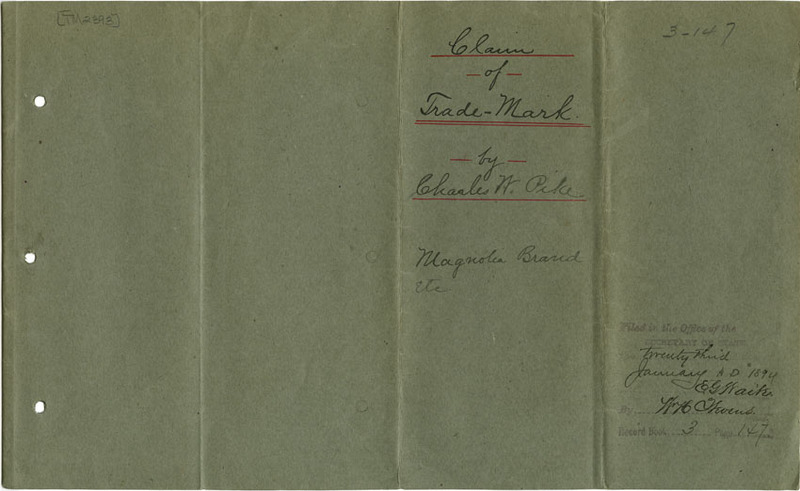 [TM2393]
Claim
— of —
Trade-Mark.
— by —
Charles W. Pike.
Magnolia Brand
etc
3-147
Filed in the Office of the
SECRETARY OF STATE
twenty third
January A D 1894
E G Waite
By
Record Book 3 Page 147